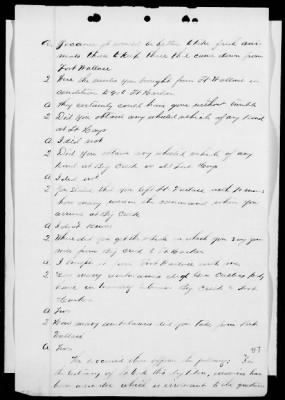 A Because it would be better to take fresh ani-
mals there than to keep those that came down from
Fort Wallace
Q Were the mules you brought from Ft Wallace in
condition to go to Ft Harker
A They certainly could have gone without trouble
Q Did you obtain any wheeled vehicle of any kind
at Ft Hays
A I did not
Q Did you obtain any wheeled vehicle of any
kind at Big Creek or at Fort Hays
A I did not
Q You stated that you left Ft Wallace with
how many were in the command when you
arrived at Big Creek
A I don't know
Q Where did you get the vehicle in which you say you
rode from Big Creek to Ft Harker
A I brought it from Fort Wallace with me
Q How many ambulances did Gen Custer's party
have in between Big Creek & Fort
Harker
A Two
Q How many ambulances did you take from Fort
Wallace
A Two
The accused then
the testimony of
which is irrelevant to the question